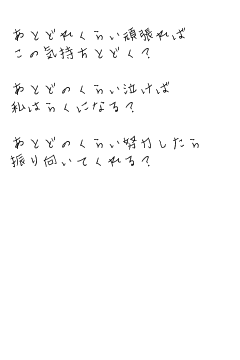 あとどれくらい頑張れば
この気持ちとどく？
あとどのくらい泣けば
私はらくになる？
あとどのくらい努力したら
振り向いてくれる？